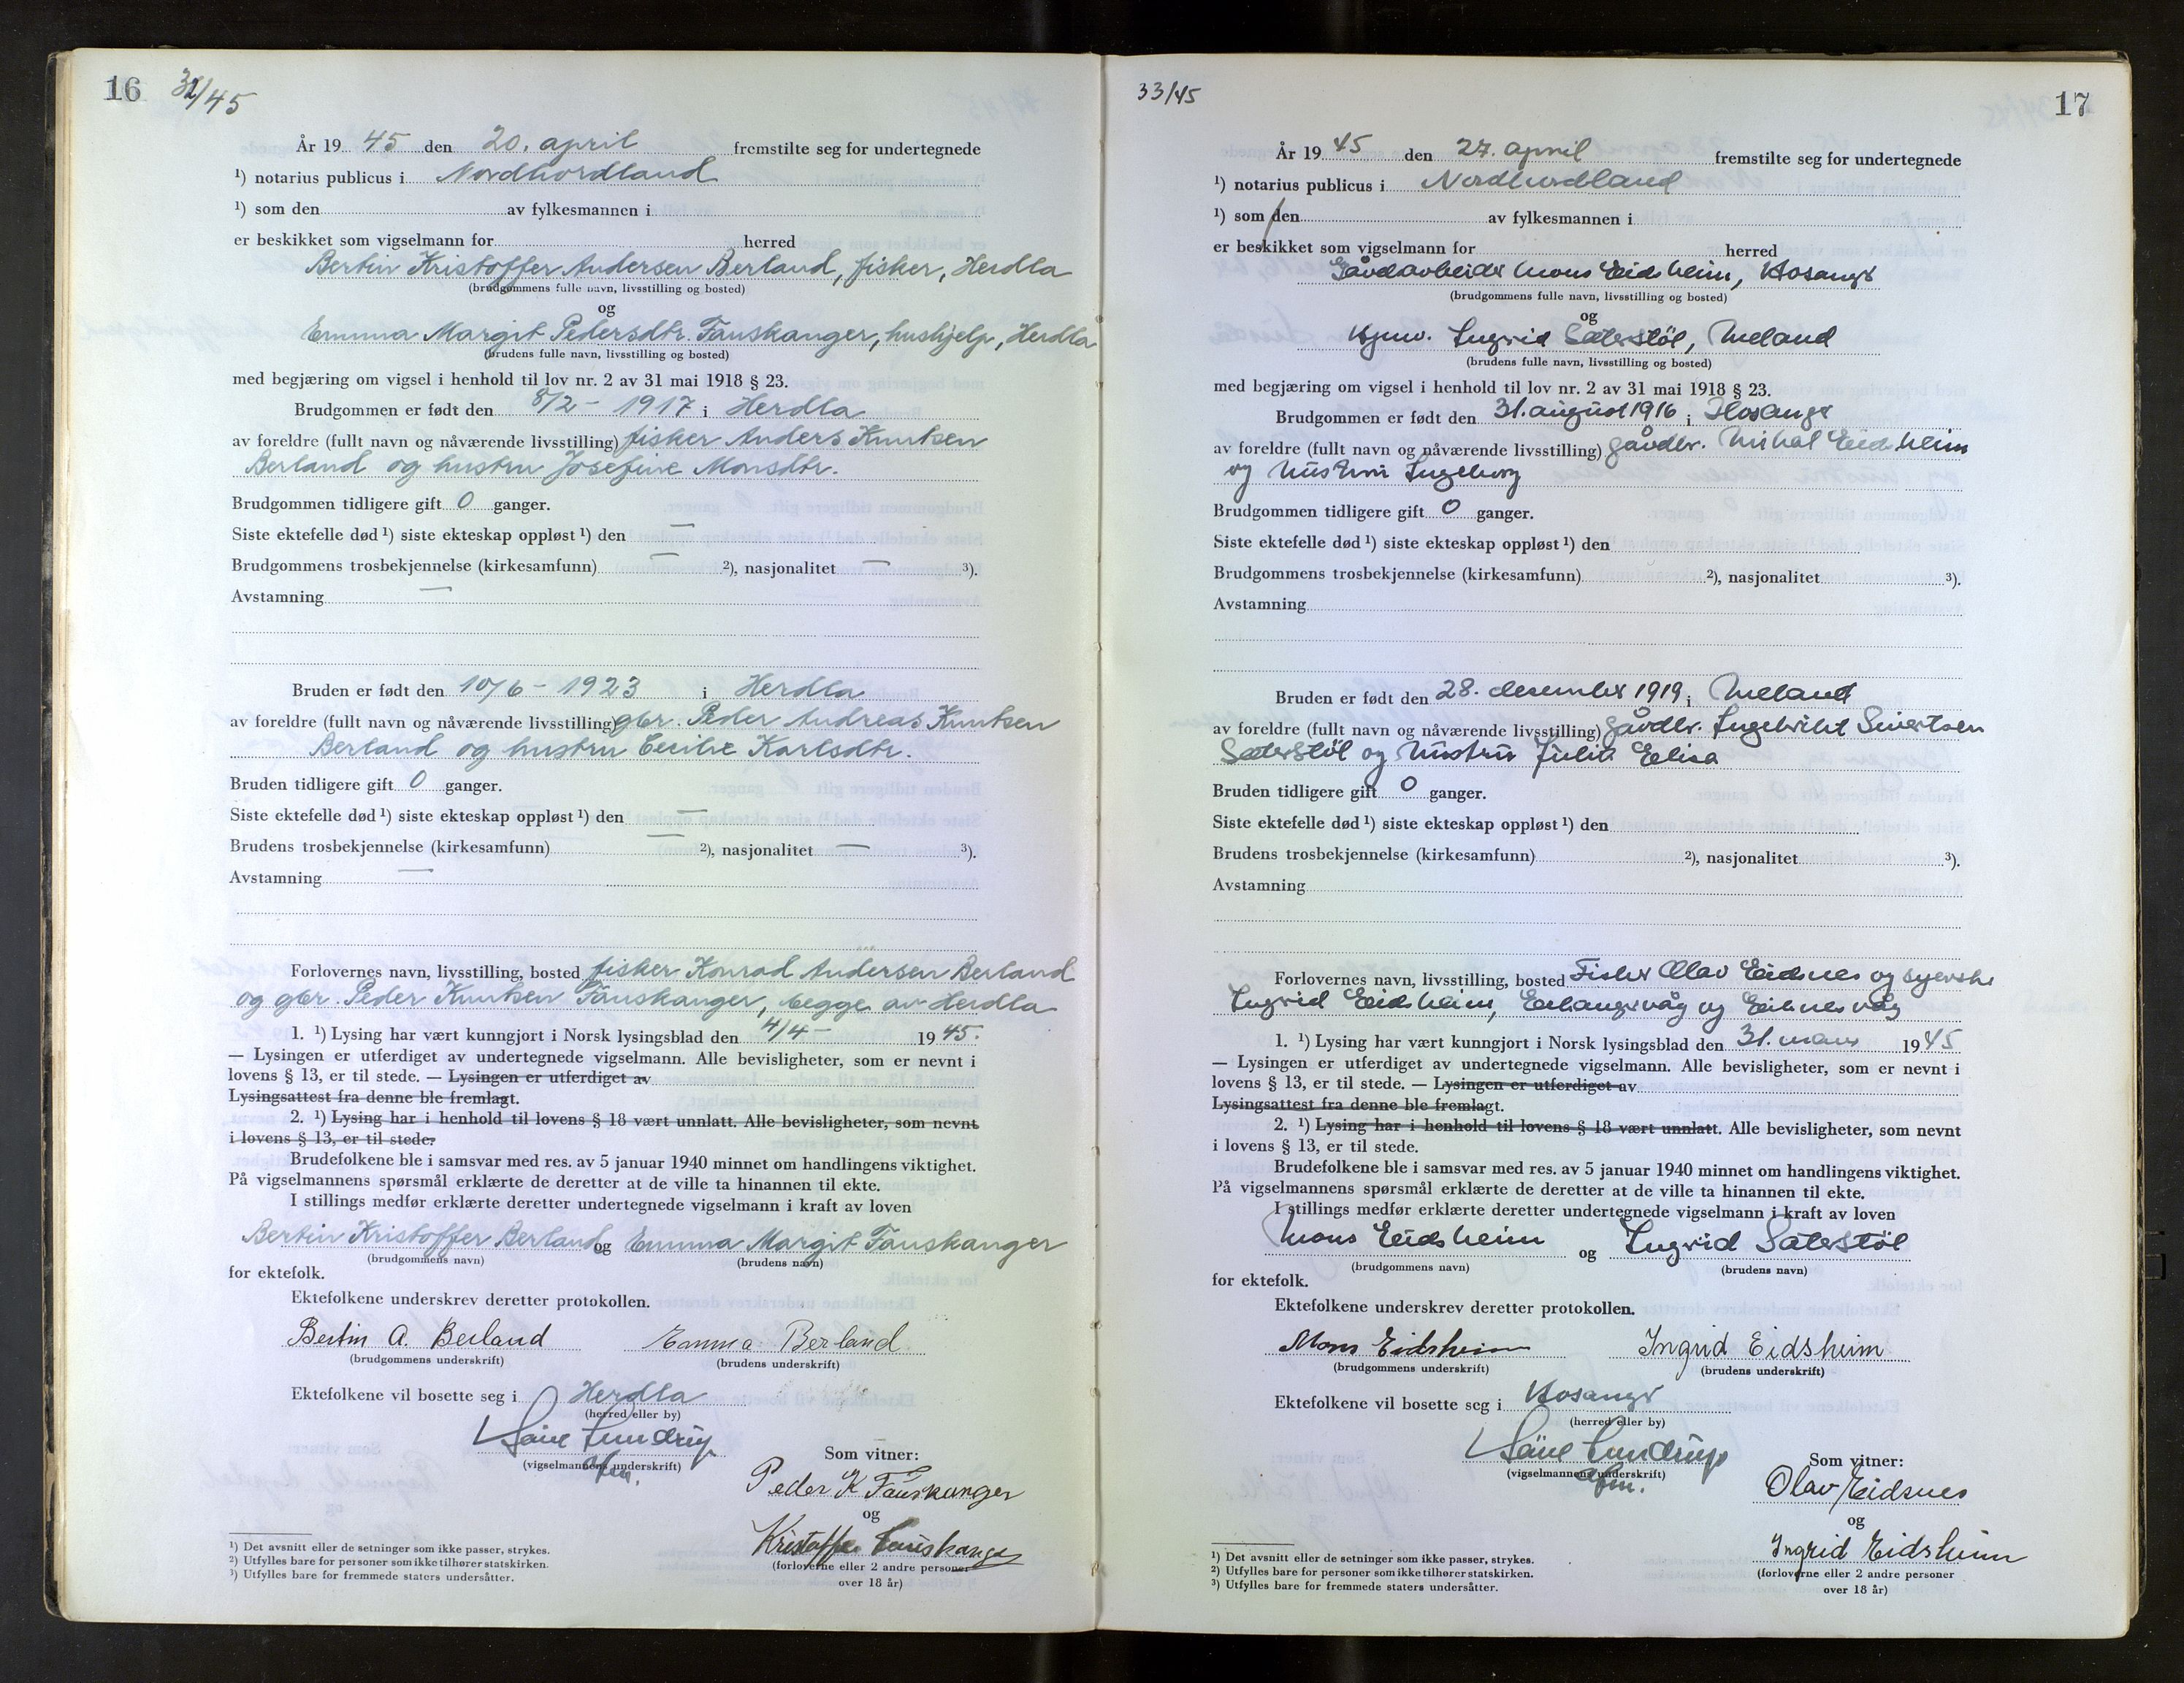 16 32/45
År 19 45 den 20. april fremstilte seg for undertegnede
¹) notarius publicus i Nordhordland
¹) som den av fylkesmannen i
er beskikket som vigselmann for herred
Bertin Kristoffer Andersen Berland, fisker, Herdla
(brudgommens fulle navn, livsstilling og bosted)
og
Emma Margit Pedersdtr. Fauskanger, hushjelp, Herdla
(brudens fulle navn, livsstilling og bosted)
med begjæring om vigsel i henhold til lov nr. 2 av 31 mai 1918 § 23.
Brudgommen er født den 8/2 - 1917 i Herdla
av foreldre (fullt navn og nåværende livsstilling) fisker Anders Knutsen
Berland og hustru Josefine Monsdtr.
Brudgommen tidligere gift 0 ganger.
Siste ektefelle død ¹) siste ekteskap oppløst ¹) den —
Brudgommens trosbekjennelse (kirkesamfunn) — ²), nasjonalitet — ³).
Avstamning —
Bruden er født den 10/6 - 1923 i Herdla
av foreldre (fullt navn og nåværende livsstilling) gbr. Peder Andreas Knutsen
Berland og hustru Cecilie Karlsdtr.
Bruden tidligere gift 0 ganger.
Siste ektefelle død ¹) siste ekteskap oppløst ¹) den —
Brudens trosbekjennelse (kirkesamfunn) — ²), nasjonalitet — ³).
Avstamning —
Forlovernes navn, livsstilling, bosted fisker Konrad Andersen Berland
og gbr. Peder Knutsen Fauskanger, begge av Herdla
1. ¹) Lysing har vært kunngjort i Norsk lysingsblad den 4/4 - 1945.
— Lysingen er utferdiget av undertegnede vigselmann. Alle bevisligheter, som er nevnt i
lovens § 13, er til stede. — Lysingen er utferdiget av
Lysingsattest fra denne ble fremlagt.
2. ¹) Lysing har i henhold til lovens § 18 vært unnlatt. Alle bevisligheter, som nevnt
i lovens § 13, er til stede.
Brudefolkene ble i samsvar med res. av 5 januar 1940 minnet om handlingens viktighet.
På vigselmannens spørsmål erklærte de deretter at de ville ta hinannen til ekte.
I stillings medfør erklærte deretter undertegnede vigselmann i kraft av loven
Bertin Kristoffer Berland og Emma Margit Fauskanger
(brudgommens navn) (brudens navn)
for ektefolk.
Ektefolkene underskrev deretter protokollen.
Bertin A. Berland Emma Berland
(brudgommens underskrift) (brudens underskrift)
Ektefolkene vil bosette seg i Herdla
(herred eller by)
(vigselmannens underskrift)
Som vitner:
Peder K Fauskanger
og
Kristoffer Fauskanger
(forloverne eller 2 andre personer
over 18 år)
¹) Det avsnitt eller de setninger som ikke passer, strykes.
²) Utfylles bare for personer som ikke tilhører statskirken.
³) Utfylles bare for fremmede staters undersåtter.
33/45 17
År 19 45 den 27. april fremstilte seg for undertegnede
¹) notarius publicus i Nordhordland
¹) som den av fylkesmannen i
er beskikket som vigselmann for herred
Gårdarbeider Mons Eidsheim, Hosanger
(brudgommens fulle navn, livsstilling og bosted)
og
Ingrid Sæterstøl, Meland
(brudens fulle navn, livsstilling og bosted)
med begjæring om vigsel i henhold til lov nr. 2 av 31 mai 1918 § 23.
Brudgommen er født den 31. august 1916 i Hosanger
av foreldre (fullt navn og nåværende livsstilling) gårdbr. Mikal Eidsheim
og hustru Ingeborg
Brudgommen tidligere gift 0 ganger.
Siste ektefelle død ¹) siste ekteskap oppløst ¹) den
Brudgommens trosbekjennelse (kirkesamfunn) ²), nasjonalitet ³).
Avstamning
Bruden er født den 28. desember 1919 i Meland
av foreldre (fullt navn og nåværende livsstilling) gårdbr. Ingebrikt Sivertsen
Sæterstøl og hustru Julie Elisa
Bruden tidligere gift 0 ganger.
Siste ektefelle død ¹) siste ekteskap oppløst ¹) den
Brudens trosbekjennelse (kirkesamfunn) ²), nasjonalitet ³).
Avstamning
Forlovernes navn, livsstilling, bosted Fisker Olav Eidsnes og syerske
Ingrid Eidsheim, og Eidnesvåg
1. ¹) Lysing har vært kunngjort i Norsk lysingsblad den 31. mars 1945
— Lysingen er utferdiget av undertegnede vigselmann. Alle bevisligheter, som er nevnt i
lovens § 13, er til stede. — Lysingen er utferdiget av
Lysingsattest fra denne ble fremlagt.
2. ¹) Lysing har i henhold til lovens § 18 vært unnlatt. Alle bevisligheter, som nevnt
i lovens § 13, er til stede.
Brudefolkene ble i samsvar med res. av 5 januar 1940 minnet om handlingens viktighet.
På vigselmannens spørsmål erklærte de deretter at de ville ta hinannen til ekte.
I stillings medfør erklærte deretter undertegnede vigselmann i kraft av loven
Mons Eidsheim og Ingrid Sæterstøl
(brudgommens navn) (brudens navn)
for ektefolk.
Ektefolkene underskrev deretter protokollen.
Mons Eidsheim Ingrid Eidsheim
(brudgommens underskrift) (brudens underskrift)
Ektefolkene vil bosette seg i Hosanger
(herred eller by)
(vigselmannens underskrift)
Som vitner:
Olav Eidsnes
og
Ingrid Eidsheim
(forloverne eller 2 andre personer
over 18 år)
¹) Det avsnitt eller de setninger som ikke passer, strykes.
²) Utfylles bare for personer som ikke tilhører statskirken.
³) Utfylles bare for fremmede staters undersåtter.